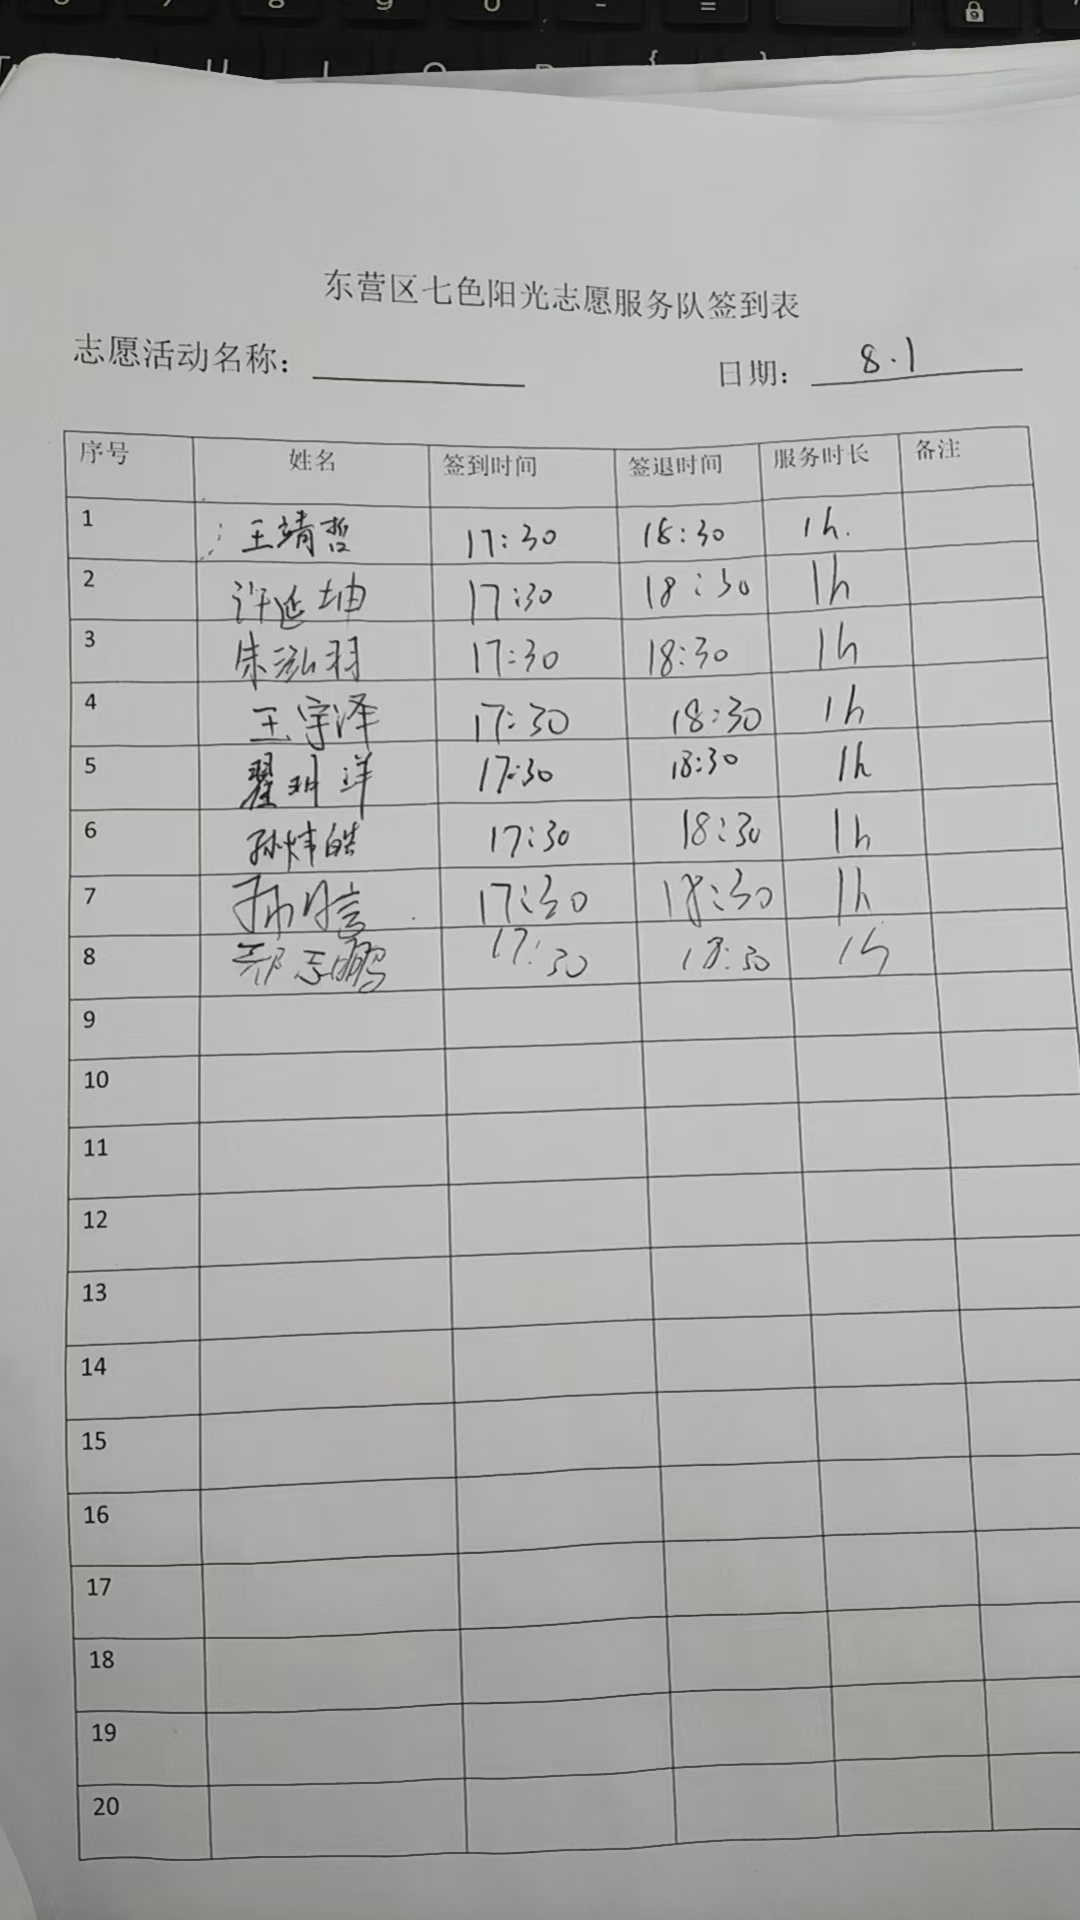 东营区七色阳光志愿服务队签到表
志愿活动名称： 日期： 8.1
序号 姓名 签到时间 签退时间 服务时长 备注
1 王靖哲 17:30 18:30 1h.
2 许延坤 17:30 18:30 1h
3 朱泓羽 17:30 18:30 1h
4 王宇泽 17:30 18:30 1h
5 翟明洋 17:30 18:30 1h
6 孙炜皓 17:30 18:30 1h
7 17:30 18:30 1h
8 郑志鹏 17:30 18:30 1h
9
10
11
12
13
14
15
16
17
18
19
20